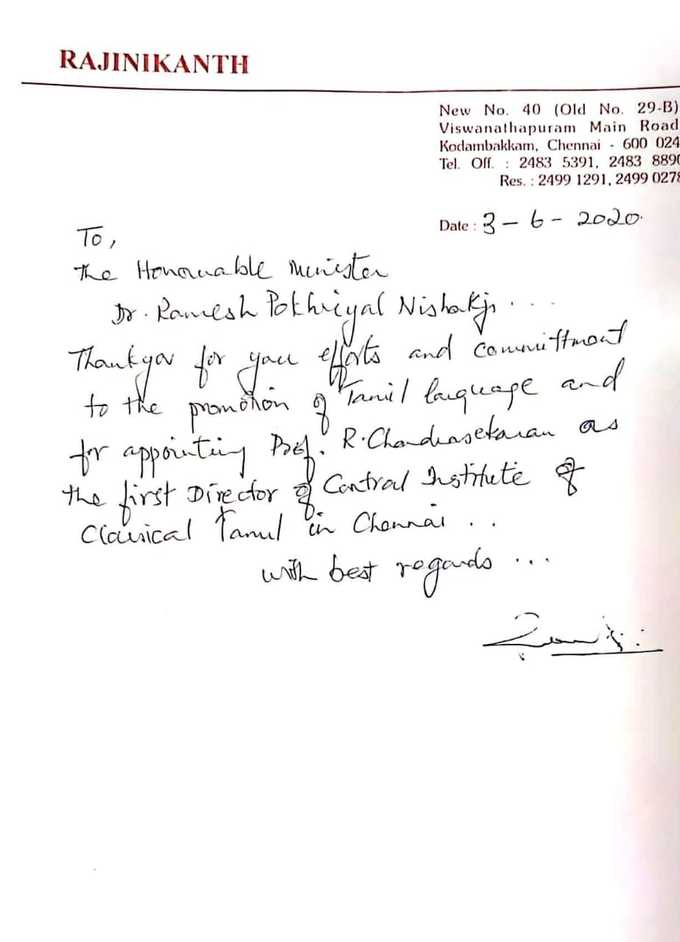 RAJINIKANTH
New No. 40 (Old No. 29-B)
Viswanathapuram Main Road
Kodambakkam, Chennai - 600 024
Tel. Off. : 2483 5391, 2483 8890
Res. : 2499 1291, 2499 0278
Date : 3 - 6 - 2020.
To,
The Honourable Minister
Dr. Ramesh Pokhriyal Nishakji . . .
Thankyou for your efforts and committment
to the promotion of Tamil language and
for appointing Prof. R. Chandrasekaran as
the first Director of Central Institute of
Classical Tamil in Chennai . . .
with best regards ...